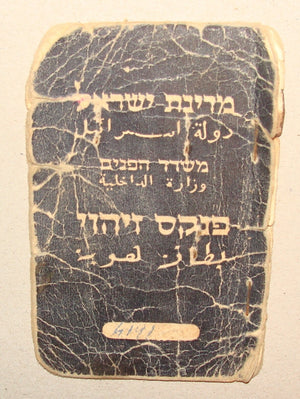 מדינת ישראל
دولة اسرائيل
משרד הפנים
وزارة الداخلية
פנקס זיהוי
بطاقة هوية